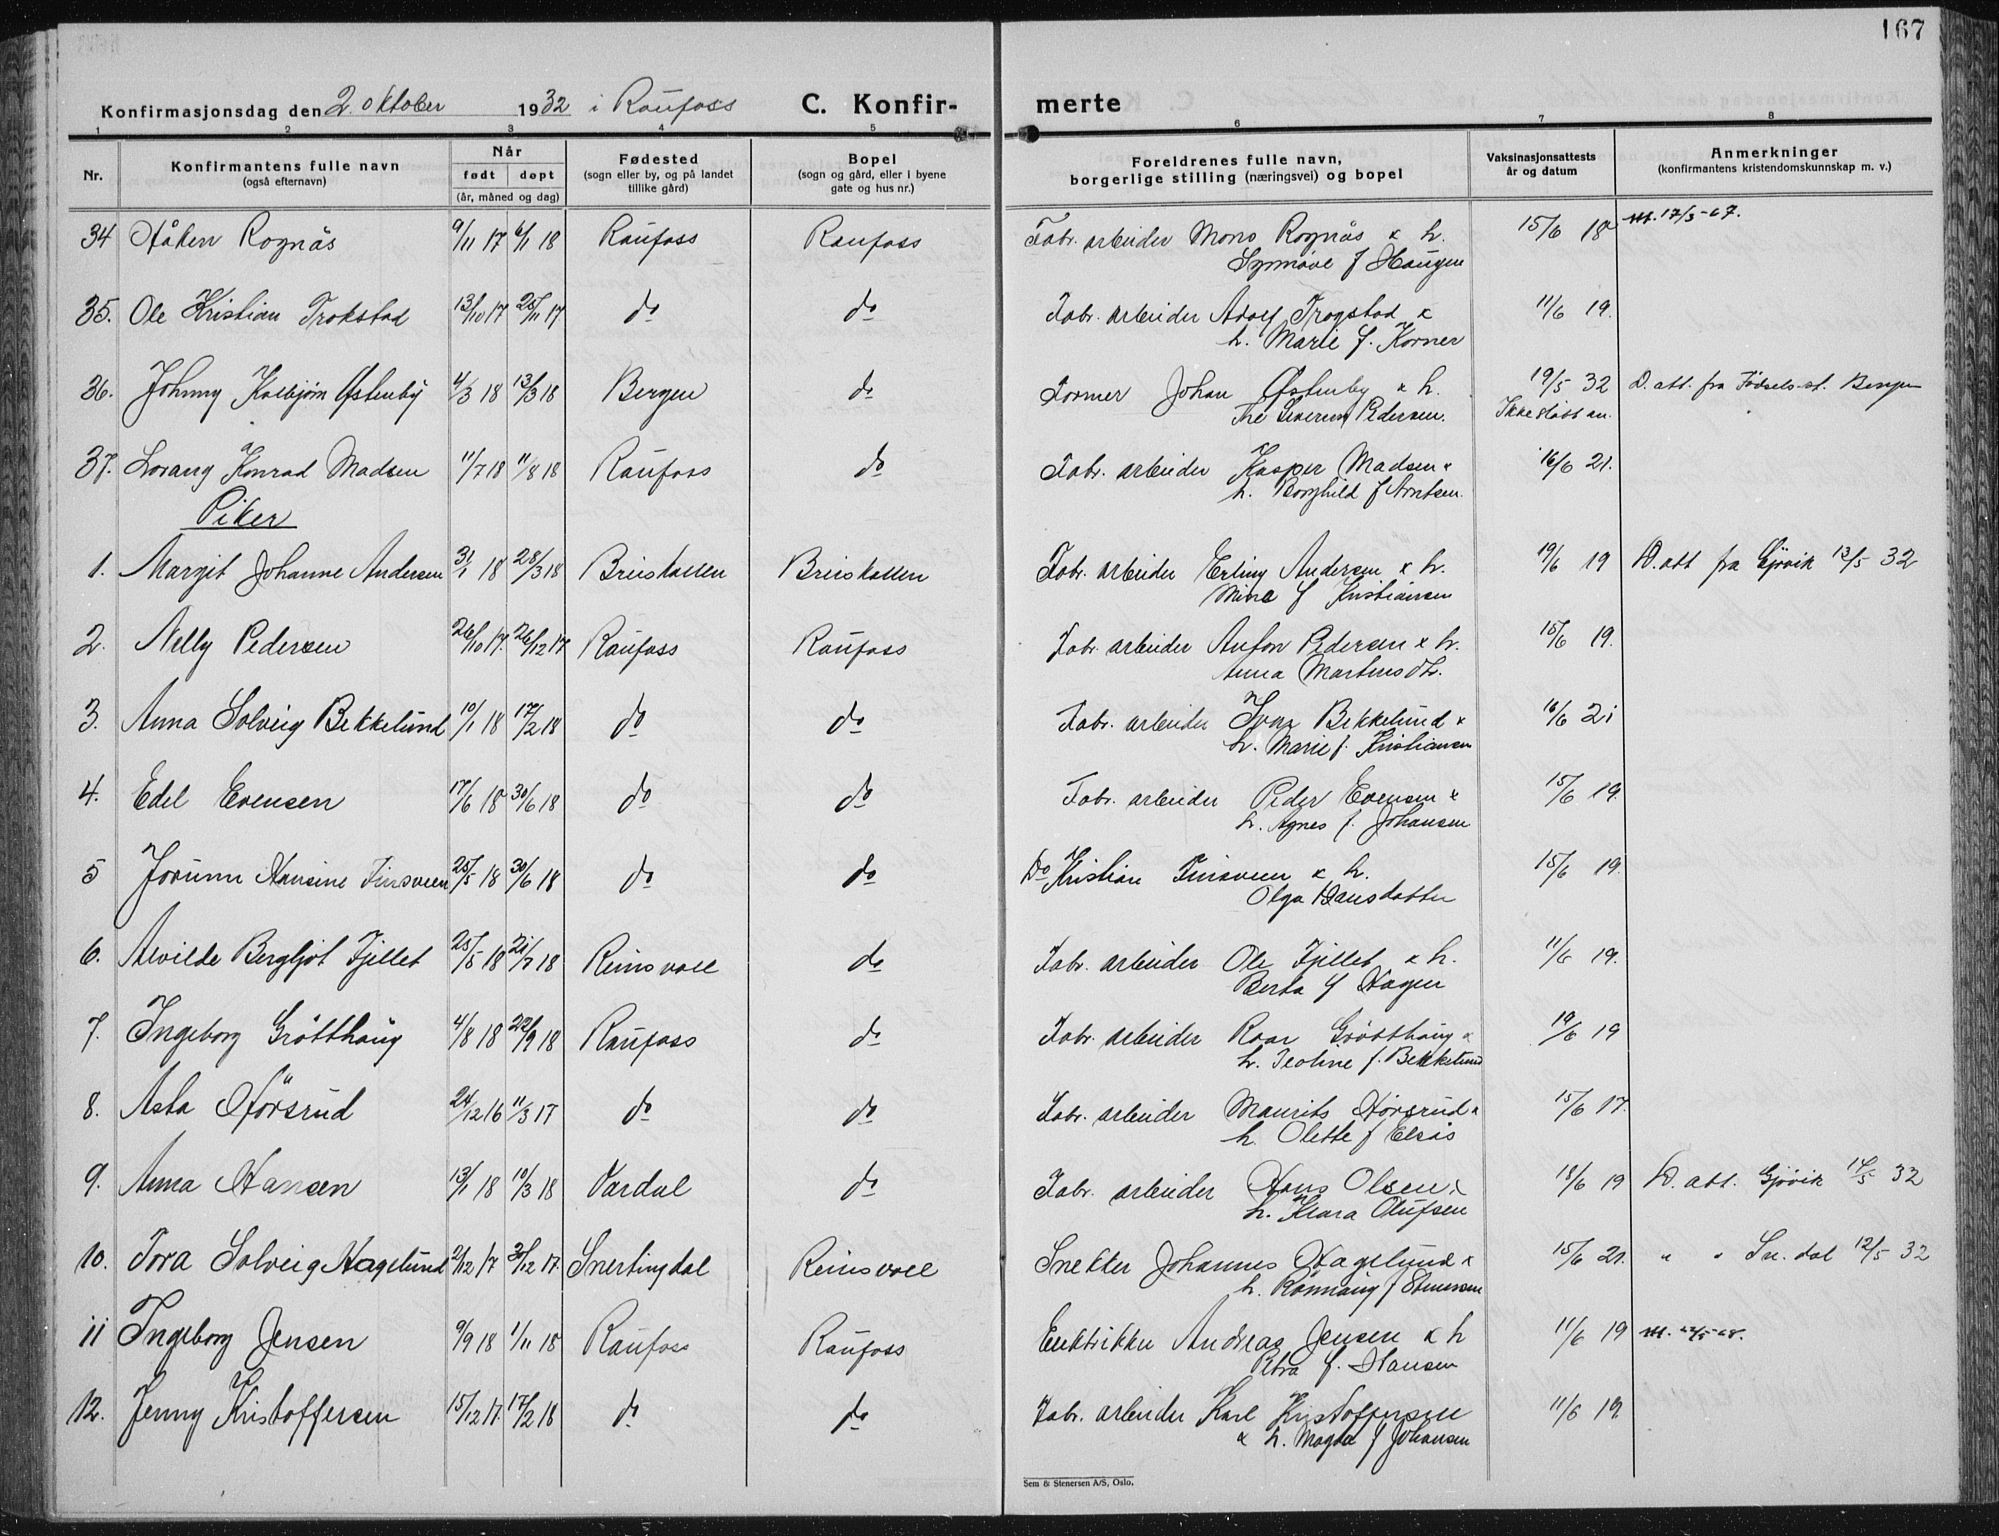 167
Konfirmasjonsdag den 2. oktober 1932 i Raufoss C. Konfir- merte
1 2 3 4 5 6 7 8
Nr. Konfirmantens fulle navn (også efternavn) Når født døpt (år, måned og dag) Fødested (sogn eller by, og på landet tillike gård) Bopel (sogn og gård, eller i byene gate og hus nr.) Foreldrenes fulle navn, borgerlige stilling (næringsvei) og bopel Vaksinasjonsattests år og datum Anmerkninger (konfirmantens kristendomskunnskap m. v.)
34 Håken Rognås 9/11 17 6/1 18 Raufoss Raufoss Fabr. arbeider Mons Rognås & h. 15/6 18 m. 17/5-67.
Synnøve f Haugen
35. Ole Kristian Trokstad 13/10 17 25/11 17 do do Fabr. arbeider Adolf Trogstad & 11/6 19.
h. Marie f. Korner
36. Johnny Kolbjørn Østenby 4/3 18 13/3 18 Bergen do Former Johan Østenby & h. 19/5 32 D. att. fra Fødsels-st. Bergen
Pedersen. Ikke slått an.
37. Lorang Konrad Madsen 11/7 18 11/8 18 Raufoss do Fabr. arbeider Kasper Madsen & 16/6 21.
h. Borghild f Arntsen.
Piker
1. Margit Johanne Andersen 31/1 18 28/3 18 Breiskallen Breiskallen Fabr. arbeider Erling Andersen & h. 19/6 19 D. att fra Gjøvik 13/5 32
Mina f Kristiansen
2. Nelly Pedersen 26/10 17. 26/12 17 Raufoss Raufoss Fabr. arbeider Anton Pedersen & h. 15/6 19.
Anna Martinsdtr.
3. Anna Solveig Bekkelund 10/1 18 17/2 18 do do Fabr. arbeider Ivar Bekkelund & 16/6 21
h. Marie f. Kristiansen
4. Edel Evensen 17/6 18 30/6 18 do do Fabr. arbeider Peder Evensen & 15/6 19.
h. Agnes f. Johansen
5 Jorunn Hansine Finsveen 25/5 18 30/6 18 do do Do Kristian Finsveen & h. 15/6 19.
Olga Hansdatter
6. Alvilde Bergljot Fjellet 25/5 18 21/7 18 Reinsvoll do Fabr. arbeider Ole Fjellet & h. 11/6 19.
Berta f Hagen
7. Ingeborg Gråtthaug 4/8 18 22/9 18 Raufoss do Fabr. arbeider Roar Gråtthaug & 19/6 19
h. Teoline f. Bekkelund
8. Asta Hørsrud 24/12 16 11/3 17 do do Fabr. arbeider Maurits Hørsrud & 15/6 17.
h. Olette f Elsås
9. Anna Hansen 13/1 18 10/3 18 Vardal do Fabr. arbeider Hans Olsen & 18/6 19 D. att. Gjøvik 14/5 32
h. Klara Olufsen
10. Tora Solveig Hagelund 2/12 17 30/12 17. Snertingdal Reinsvoll Snekker Johannes Hagelund & 15/6 21. " " Sn. dal 12/5 32
h. Rønnaug f Stenersen
11 Ingeborg Jensen 9/9 18 1/11 18 Raufoss Raufoss Elektriker Andreas Jensen & h 11/6 19
Petra f. Hansen
12. Jenny Kristoffersen 15/12 17. 17/2 18 do do Fabr. arbeider Karl Kristoffersen 11/6 19
& h. Magda f Johansen
Sem & Stenersen A/S, Oslo.